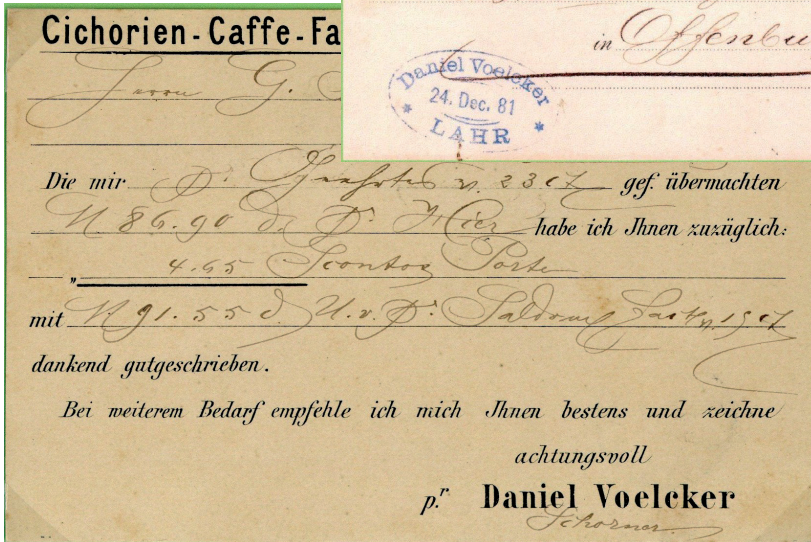 Cichorien-Caffe-Fa
in Offenbu
Daniel Voelcker
24. Dec. 81
LAHR
Herrn G.
Die mir pr. Geehrtes v. 23 ct gef. übermachten
M 86.90 d. pr. Hier habe ich Ihnen zuzüglich:
" 4.65 Sconto Porto
mit M 91.55 d. U. v. pr. Saldo
dankend gutgeschrieben.
Bei weiterem Bedarf empfehle ich mich Ihnen bestens und zeichne
achtungsvoll
p.r Daniel Voelcker